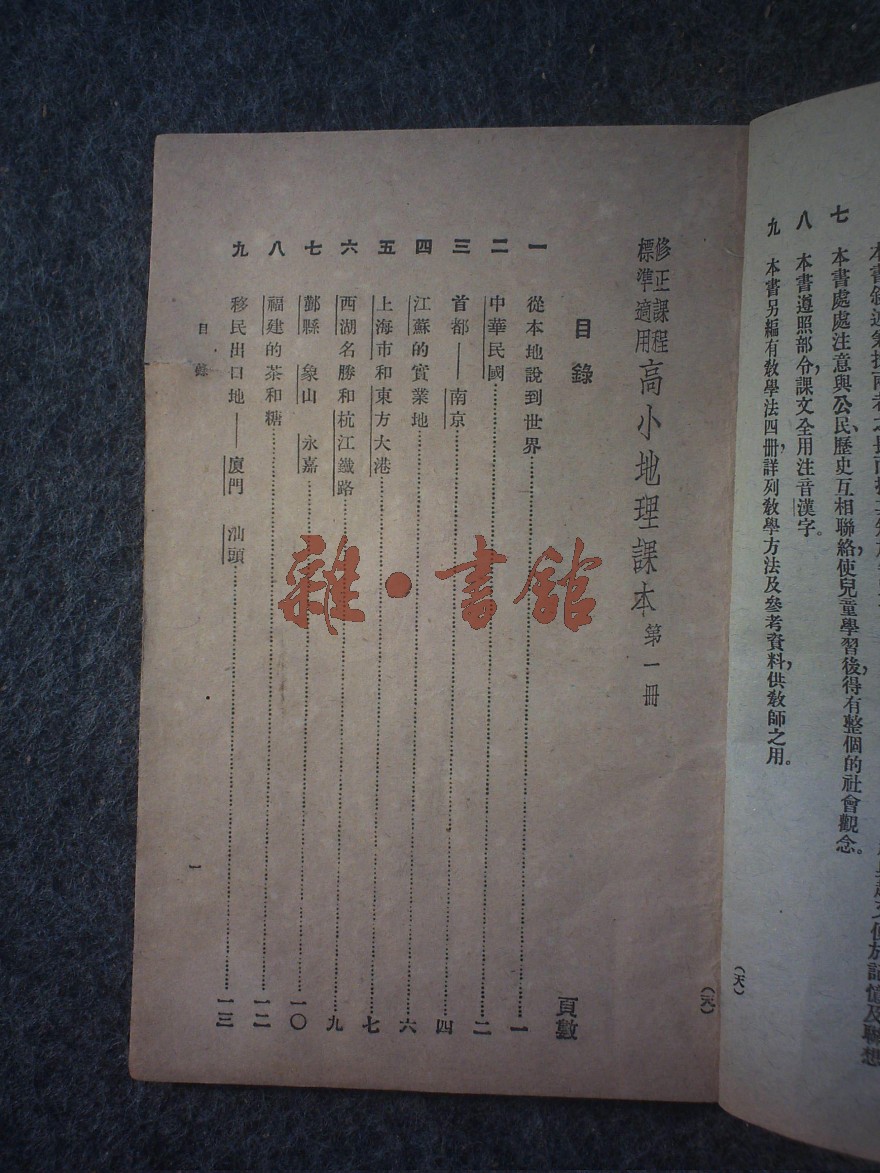 七 本書處處注意與公民、歷史互相聯絡,使兒童學習後,得有整個的社會觀念。
八 本書遵照部令,課文全用注音漢字。
九 本書另編有教學法四冊,詳列教學方法及參考資料,供教師之用。
(天)
(天)
修正課程標準適用 高小地理課本 第一冊
目錄
頁數
一 從本地說到世界 一
二 中華民國 二
三 首都——南京 四
四 江蘇的實業地 六
五 上海市和東方大港 七
六 西湖名勝和杭江鐵路 九
七 鄞縣 象山 永嘉 一〇
八 福建的茶和糖 一二
九 移民出口地——廈門 汕頭 一三
目錄
一
雜·書館